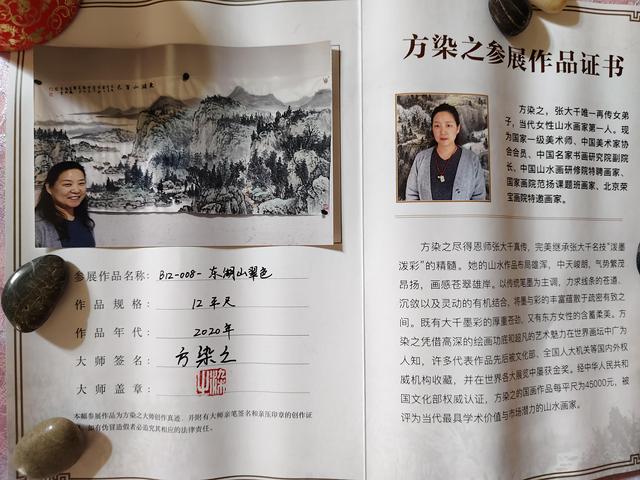 参展作品名称：B12-008-东湖山翠色
作品规格：12平尺
作品年代：2020年
大师签名：方染之
大师盖章：
本幅参展作品为方染之大师创作真迹，并附有大师亲笔签名和亲压印章的创作证
书，如有伪冒造假者必追究其相应的法律责任。
方染之参展作品证书
方染之，张大千唯一再传女弟
子，当代女性山水画家第一人。现
为国家一级美术师、中国美术家协
会会员、中国名家书画研究院副院
长、中国山水画研修院特聘画家、
国家画院范扬课题班画家、北京荣
宝画院特邀画家。
方染之尽得恩师张大千真传，完美继承张大千名技“泼墨
泼彩”的精髓。她的山水作品布局雄浑，中天峻朗，气势繁茂
昂扬，画感苍翠雄岸。以传统笔墨为主调，力求线条的苍道、
沉敛以及灵动的有机结合，将墨与彩的丰富蕴散于疏密有致之
间。既有大千墨彩的厚重苍劲，又有东方女性的含蓄柔美。方
染之凭借高深的绘画功底和超凡的艺术魅力在世界画坛中广为
人知，许多代表作品先后被文化部、全国人大机关等国内外权
威机构收藏，并在世界各大展览中屡获金奖。经中华人民共和
国文化部权威认证，方染之的国画作品每平尺为45000元，被
评为当代最具学术价值与市场潜力的山水画家。